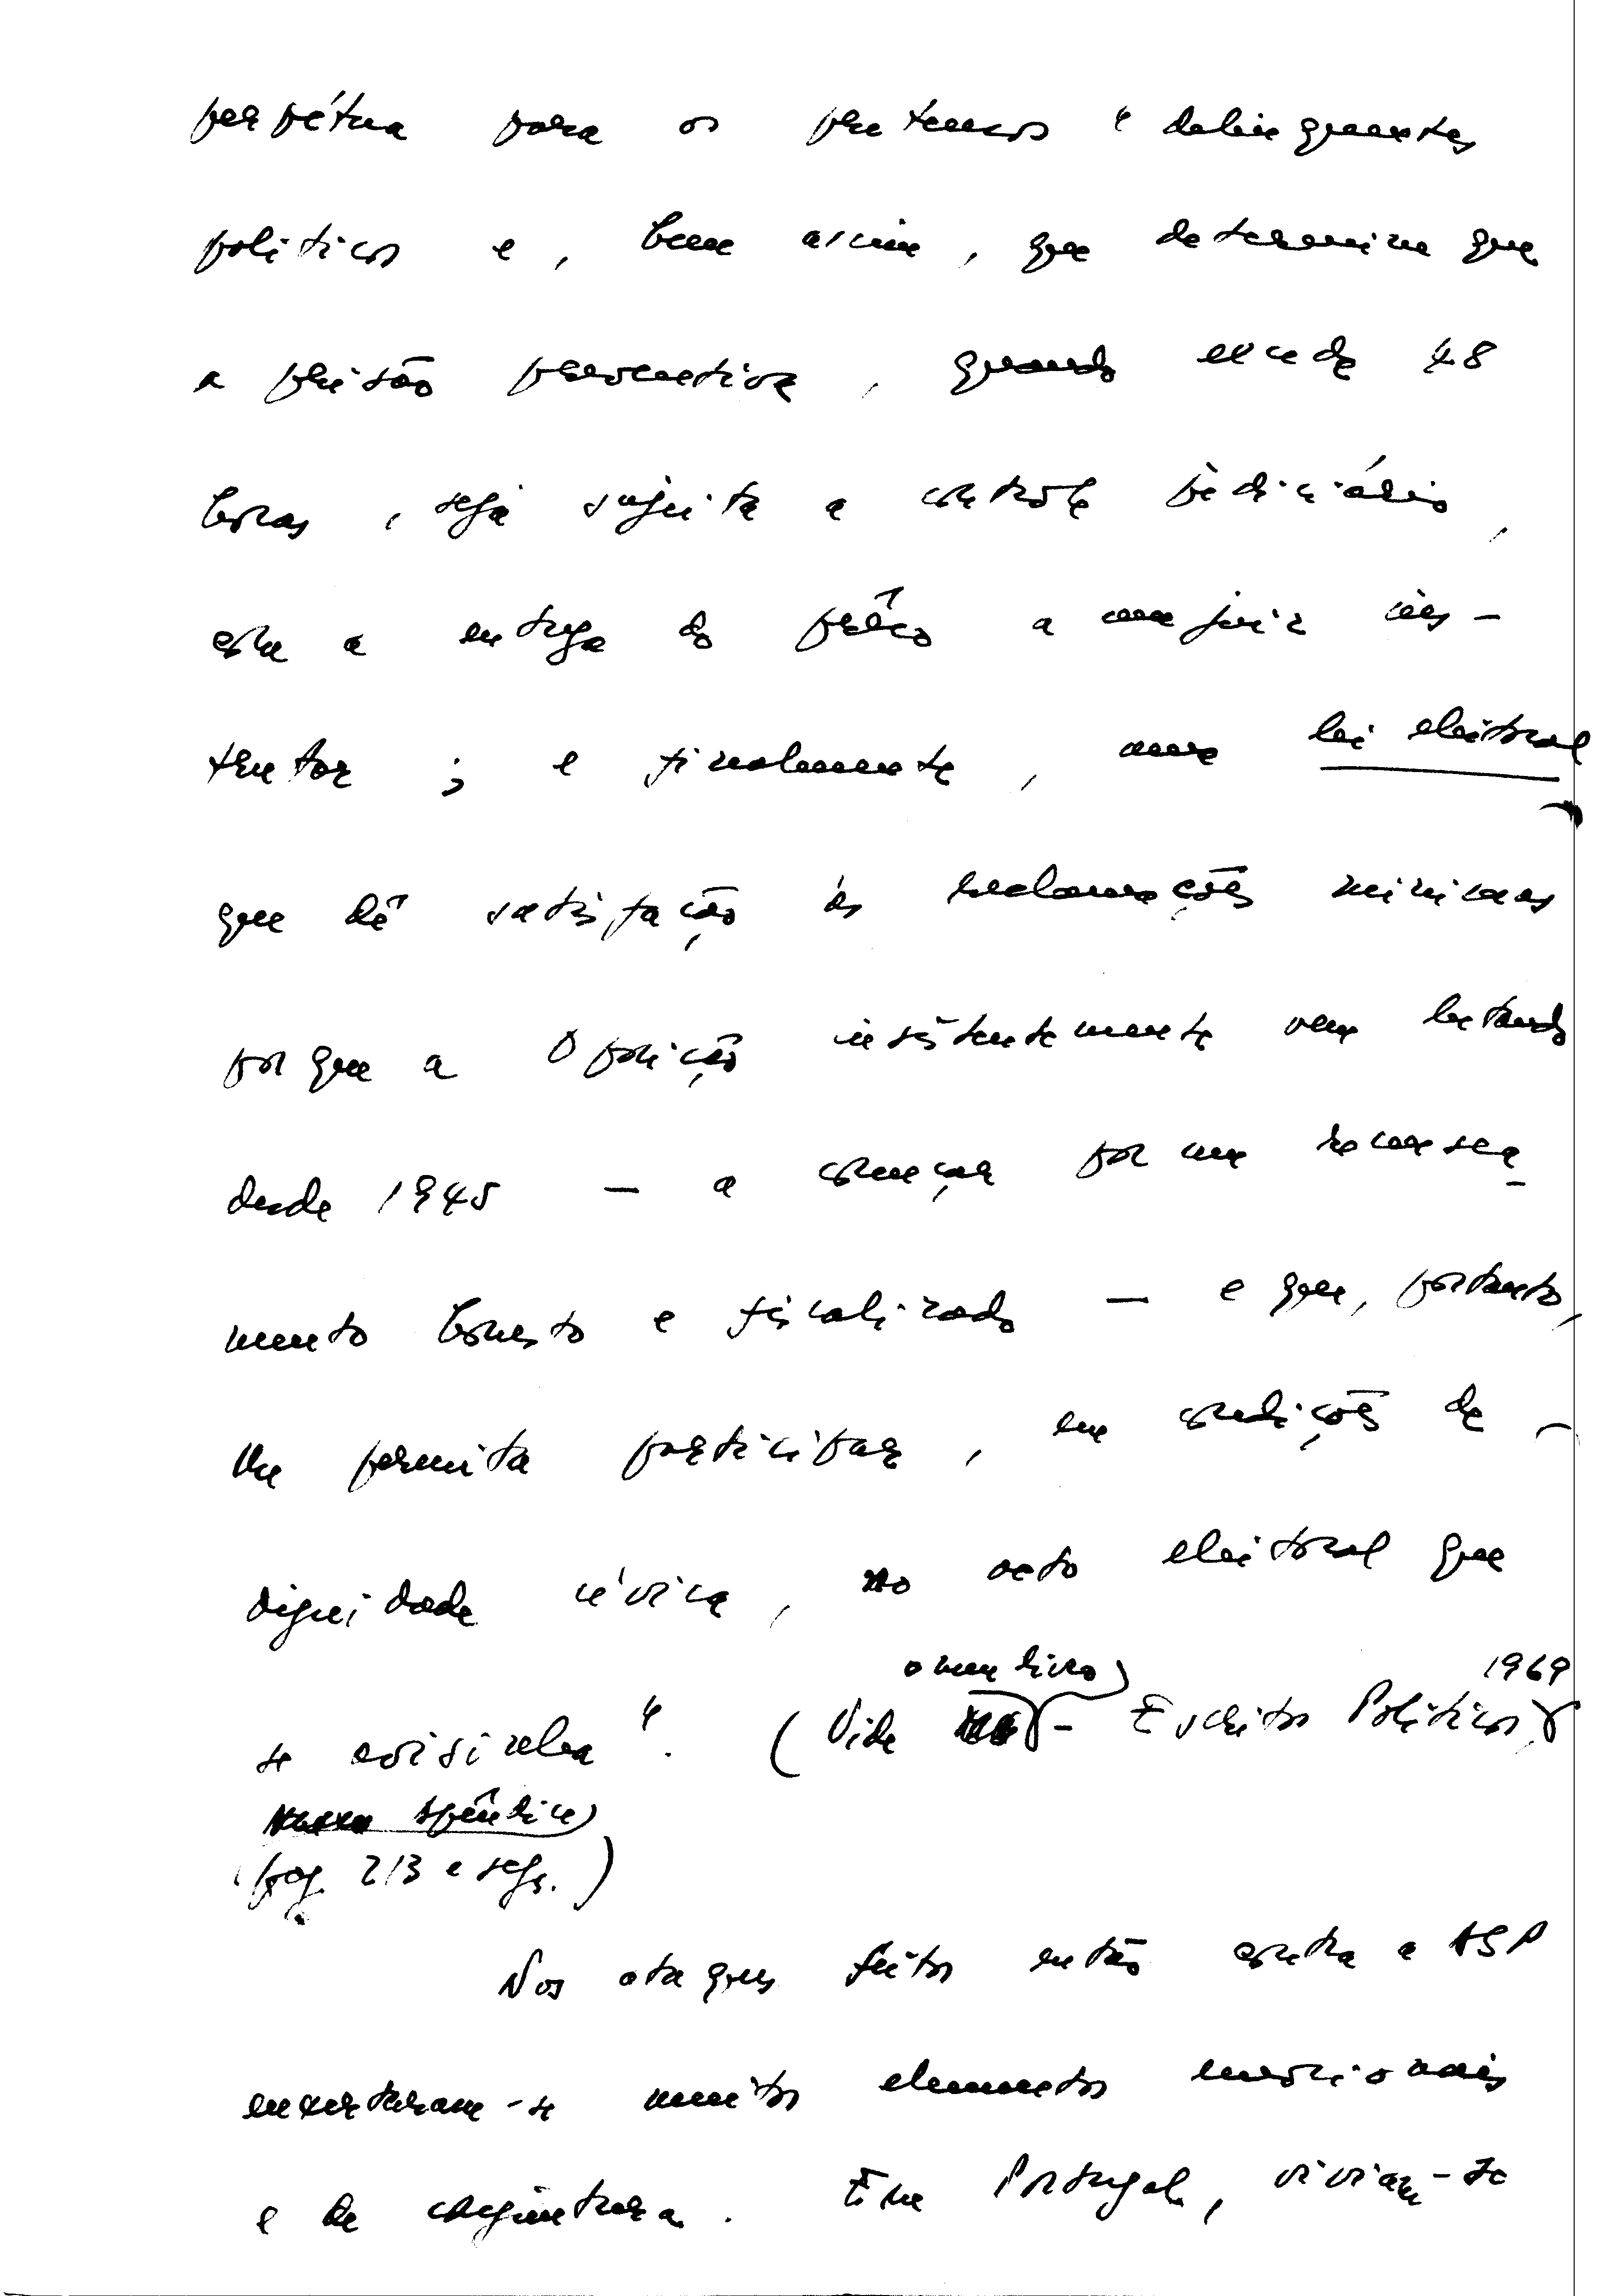 perpétua para os pretensos "delinquentes
políticos e, bem assim, que determine que
a prisão preventiva, quando exceda 48
horas, seja sujeita a contrôle judiciário,
com a entrega do prêso a um juiz ins-
trutor; e finalmente, uma lei eleitoral
que dê satisfação às reclamações mínimas
por que a Oposição insistentemente vem lutando
desde 1945 — a começar por um recensea-
mento honesto e fiscalizado — e que, portanto,
lhe permita participar, em condições de
dignidade cívica, no acto eleitoral que
o meu livro 1969
se avisinha". (Vide - Escritos Políticos,
Apêndice
pag. 213 e segs.)
Nos ataques feitos então contra a ASP
enxertaram-se muitos elementos emocionais
e de conjuntura. Em Portugal, viviam-se